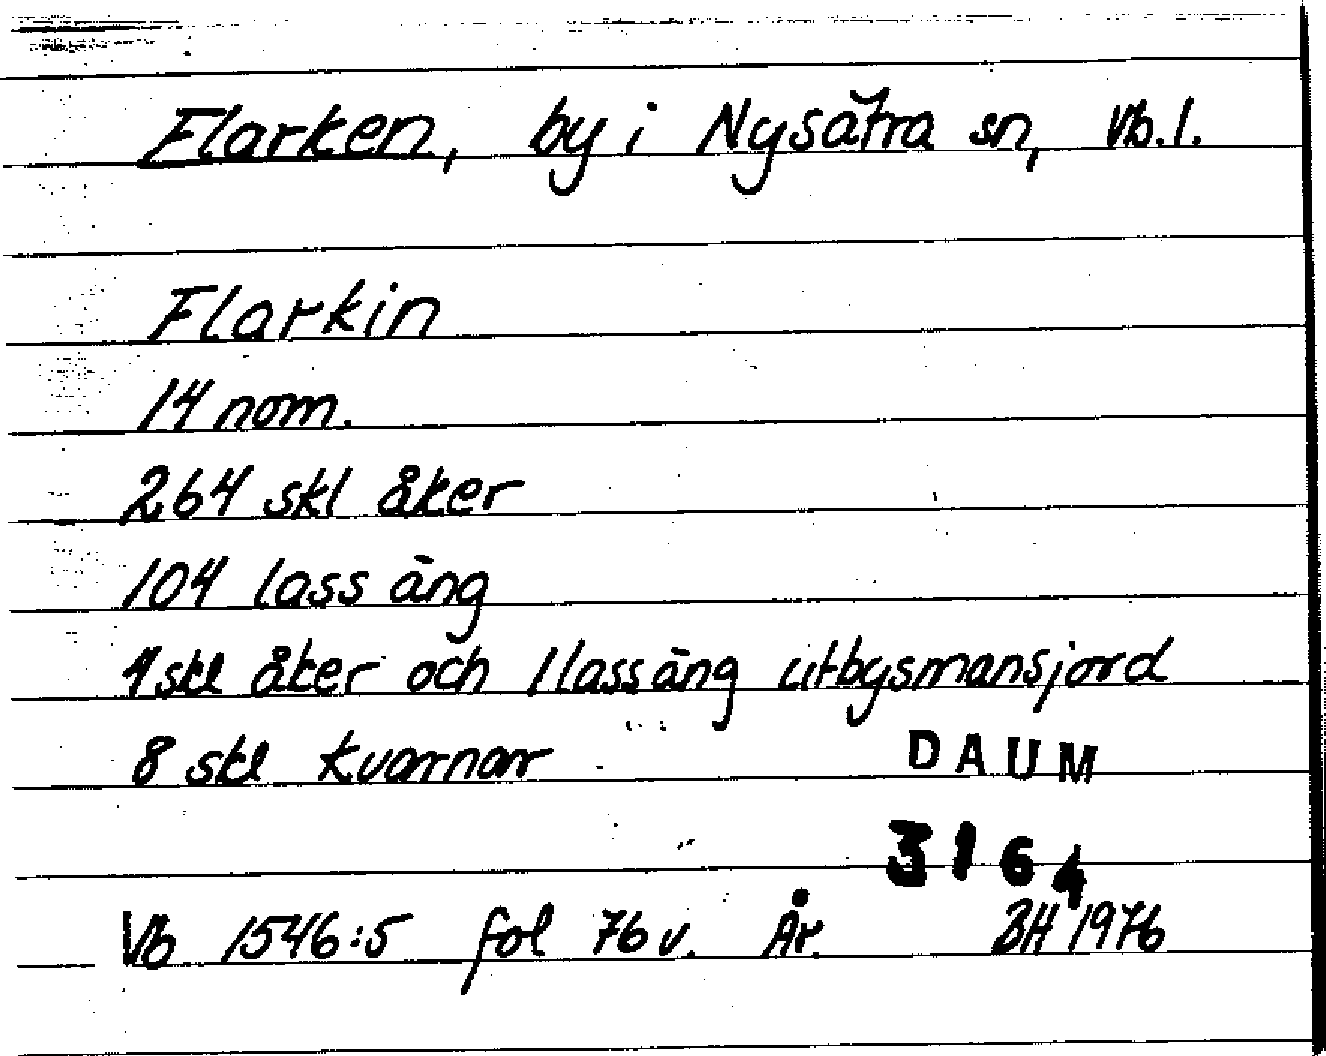 Flarken, by i Nysätra sn, Vb. l.
Flarkin
14 nom.
264 skl åker
104 lass äng
4 skl åker och 1 lass äng utbysmansjord
8 skl kvarnar
DAUM
3164
Vb 1546:5 fol 76 v. År. BH 1976